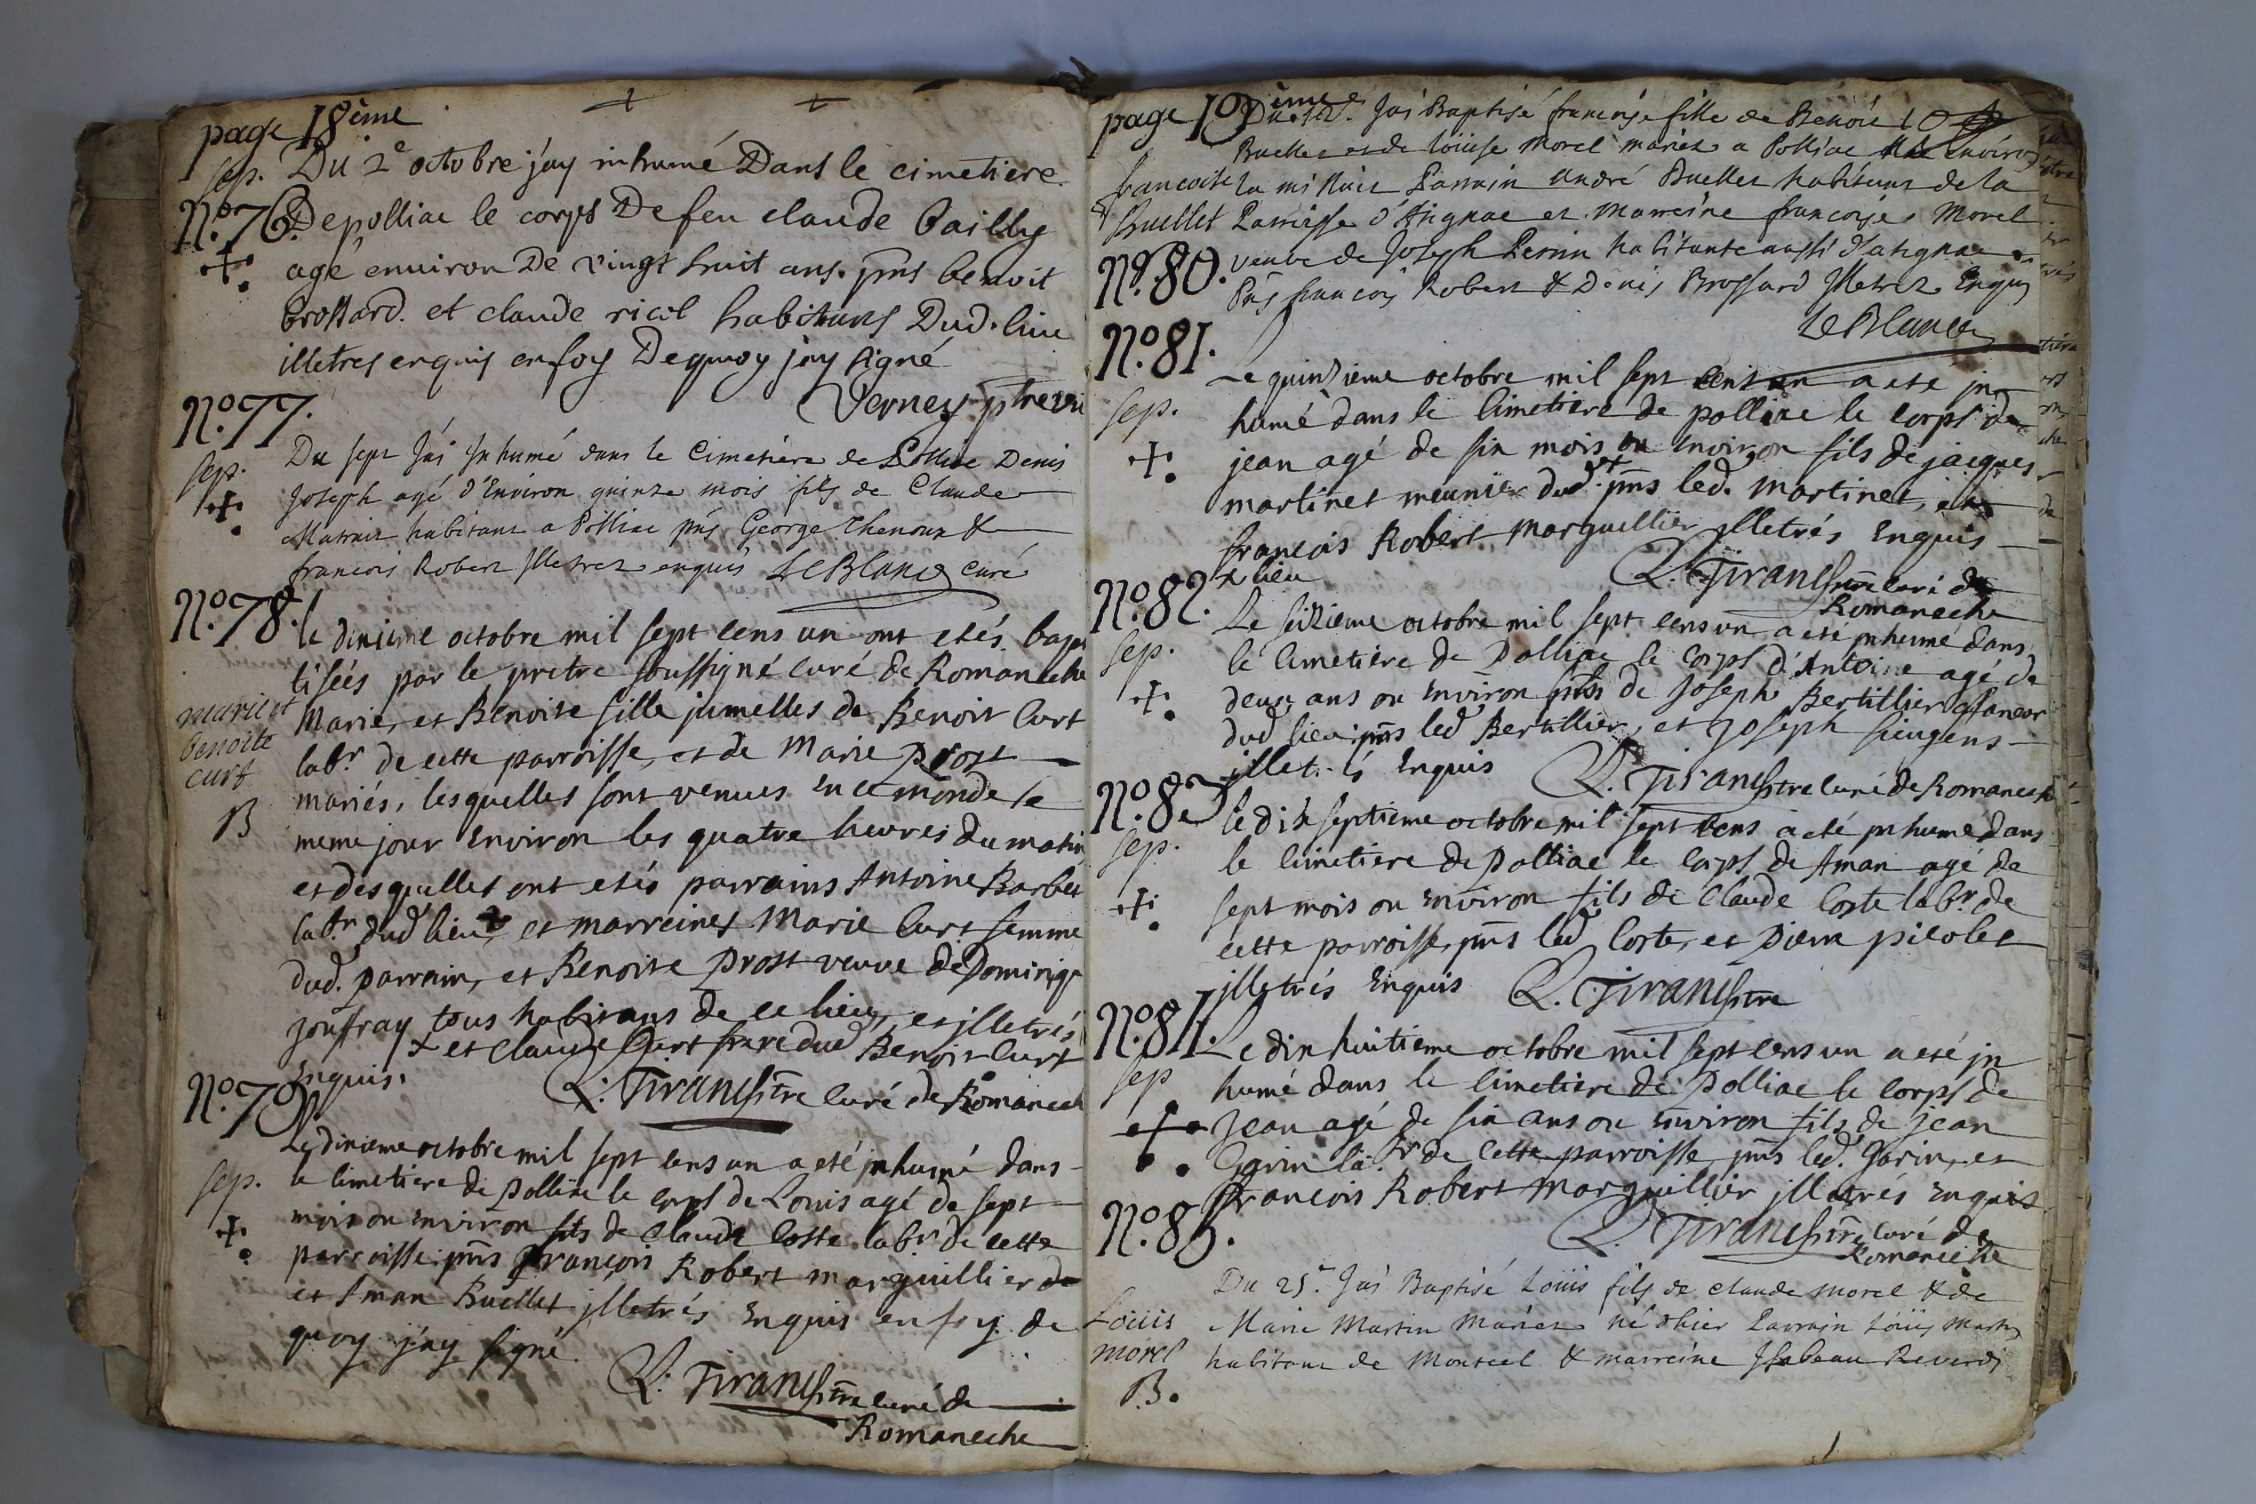 page 18ème
sep. Du 2e octobre j'ay inhumé Dans le cimetiere
No. 76. De polliac le corps De feu claude bailly
agé environ De vingt huit ans. pnts benoit
brossard. et claude ricol habitans Dud. lieu
illetres enquis en foy Dequoy j'ay signé
Verney ptre vic
No. 77.
sep. Du sept Jái Inhumé dans le Cimetière de Polliac Denis
Joseph agé d'Environ quinze mois fils de Claude
habitant a Polliac pns George Thenoux &
francois Robert Illetrez enquis LeBlanc curé
No. 78. le dixieme octobre mil sept cens un ont etés bap
tisées par le pretre soussigné curé de Romaneche
marie et Marie, et Benoite fille jumelles de Benoit Curt
benoite labr. de cette parroisse, et de Marie prost
curt mariés, lesquelles sont venues en ce monde le
B meme jour environ les quatre heures du matin
et desquelles ont etés parrains Antoine Barbet
labr. dud lieu x et marreines Marie Curt femme
dud. parrain, et Benoite prost veuve de Dominiqu
jouffray tous habitans de ce lieu, et jlletrés
x et Claude Curt frere dud Benoit Curt
Enquis.
L. Tirand ptre curé de Romanech
No. 79
Le dixieme octobre mil sept cens un a eté jnhumé dans
sep. le cimetiere de polliac le corps de Louis agé de sept
mois ou environ fils de Claude Coste labr. de cette
parroisse. pns françois Robert marguillier
et Aman Buellet jlletrés Enquis en foy de
quoy j'ay signé
L. Tirand ptre curé de
Romaneche
page 19ème Du 12e. Jái Baptisé francoise fille de Benoit
Buellet et de loüise Morel mariez a Polliac environ
francoise la mi Nuit Parrain André Buellet habitant de la
Buellet Parroisse d'Atignac et Marreine francoise Morel
No. 80. veuve de Joseph Perrin habitante aussi d'atignac
Pns francois Robert & Denis Brossard Illetrez Enquis
LeBlanc
No. 81.
Le quinzieme octobre mil sept cens un a eté jn
sep. humé dans le cimetiere de polliac le corps de
jean agé de six mois ou environ fils de jacques
martinet meunier dud. x pns led. martinet, et
françois Robert Marguillier jlletrés Enquis
x lieu
L. Tirand ptre curé de
Romaneche
No. 82.
Le seizieme octobre mil sept cens un a eté jnhumé dans
sep. le cimetiere de Polliac le corps d'Antoine agé de
deux ans ou environ fils de Joseph Bertillier
dud lieu pns led Bertillier, et joseph
jlletrés Enquis L. Tirand ptre curé de Romanech
No. 83
le dix septieme octobre mil sept cens a eté jnhumé dans
sep. le cimetiere de Polliac le corps de Aman agé de
sept mois ou environ fils de Claude Coste labr. de
cette parroisse, pns led Coste, et piere picolet
jlletrés Enquis L. Tirand ptre
No. 84. Le dix huitieme octobre mil sept cens un a eté jn
sep humé dans le cimetiere de Polliac le corps de
Jean agé de six ans ou environ fils de jean
Gorin labr de cette parroisse pns led. Gorin, et
françois Robert marguillier jlletrés Enquis
No. 85.
L. Tirand ptre curé de
Romaneche
Du 25e. Jái Baptisé Loüis fils de claude morel & de
Loüis Marie Martin Mariez né d'hier Parrain Loüis Martin
morel habitant de Montcel & marreine Isabeau Reverdi
B.